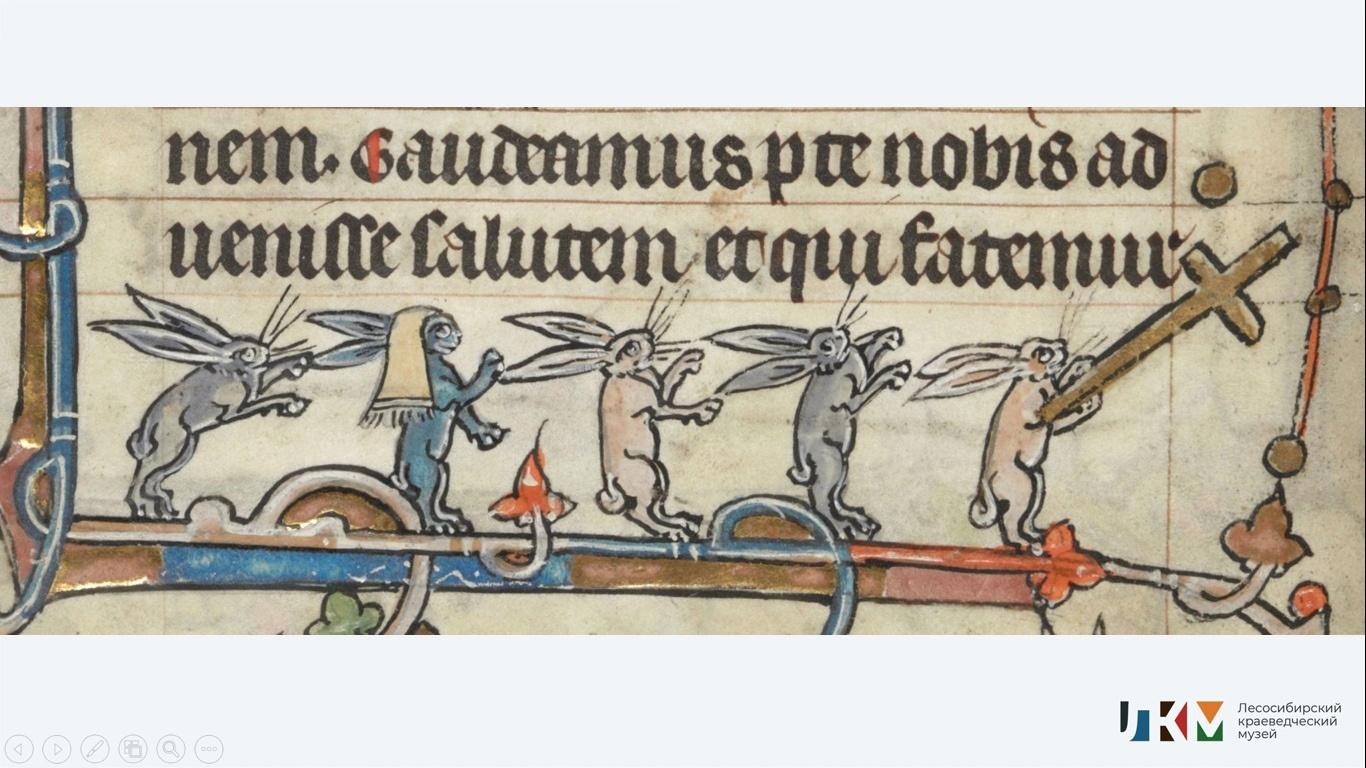 nem. Gaudeamus pte nobis ad
uenisse salutem et qui fatemur
Лесосибирский
краеведческий
музей